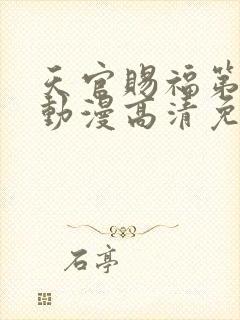 天官賜福第
動漫高清免
石亭